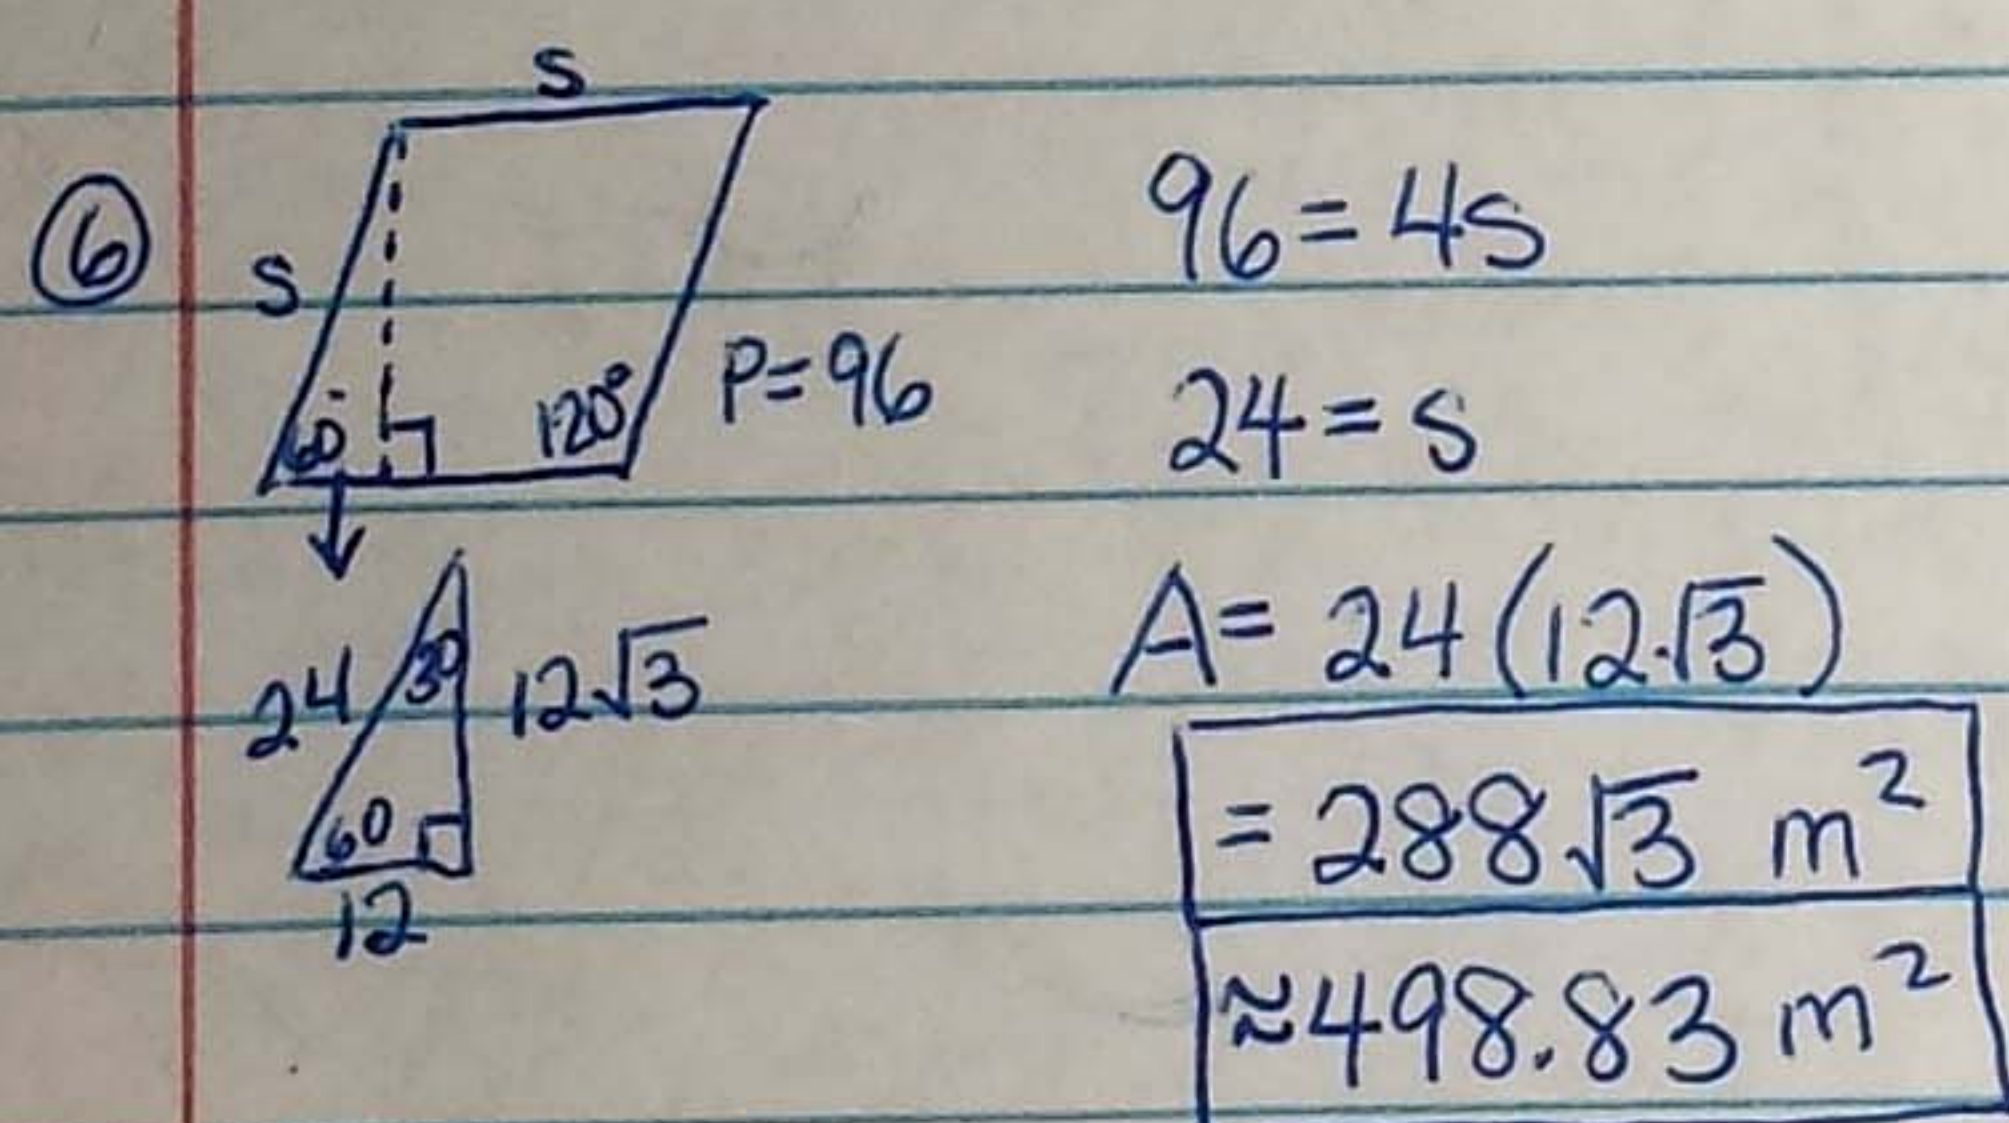 6
s
s
60°
120°
P=96
24
30
12√3
60
12
96=4s
24=s
A=24(12√3)
=288√3 m²
≈498.83 m²